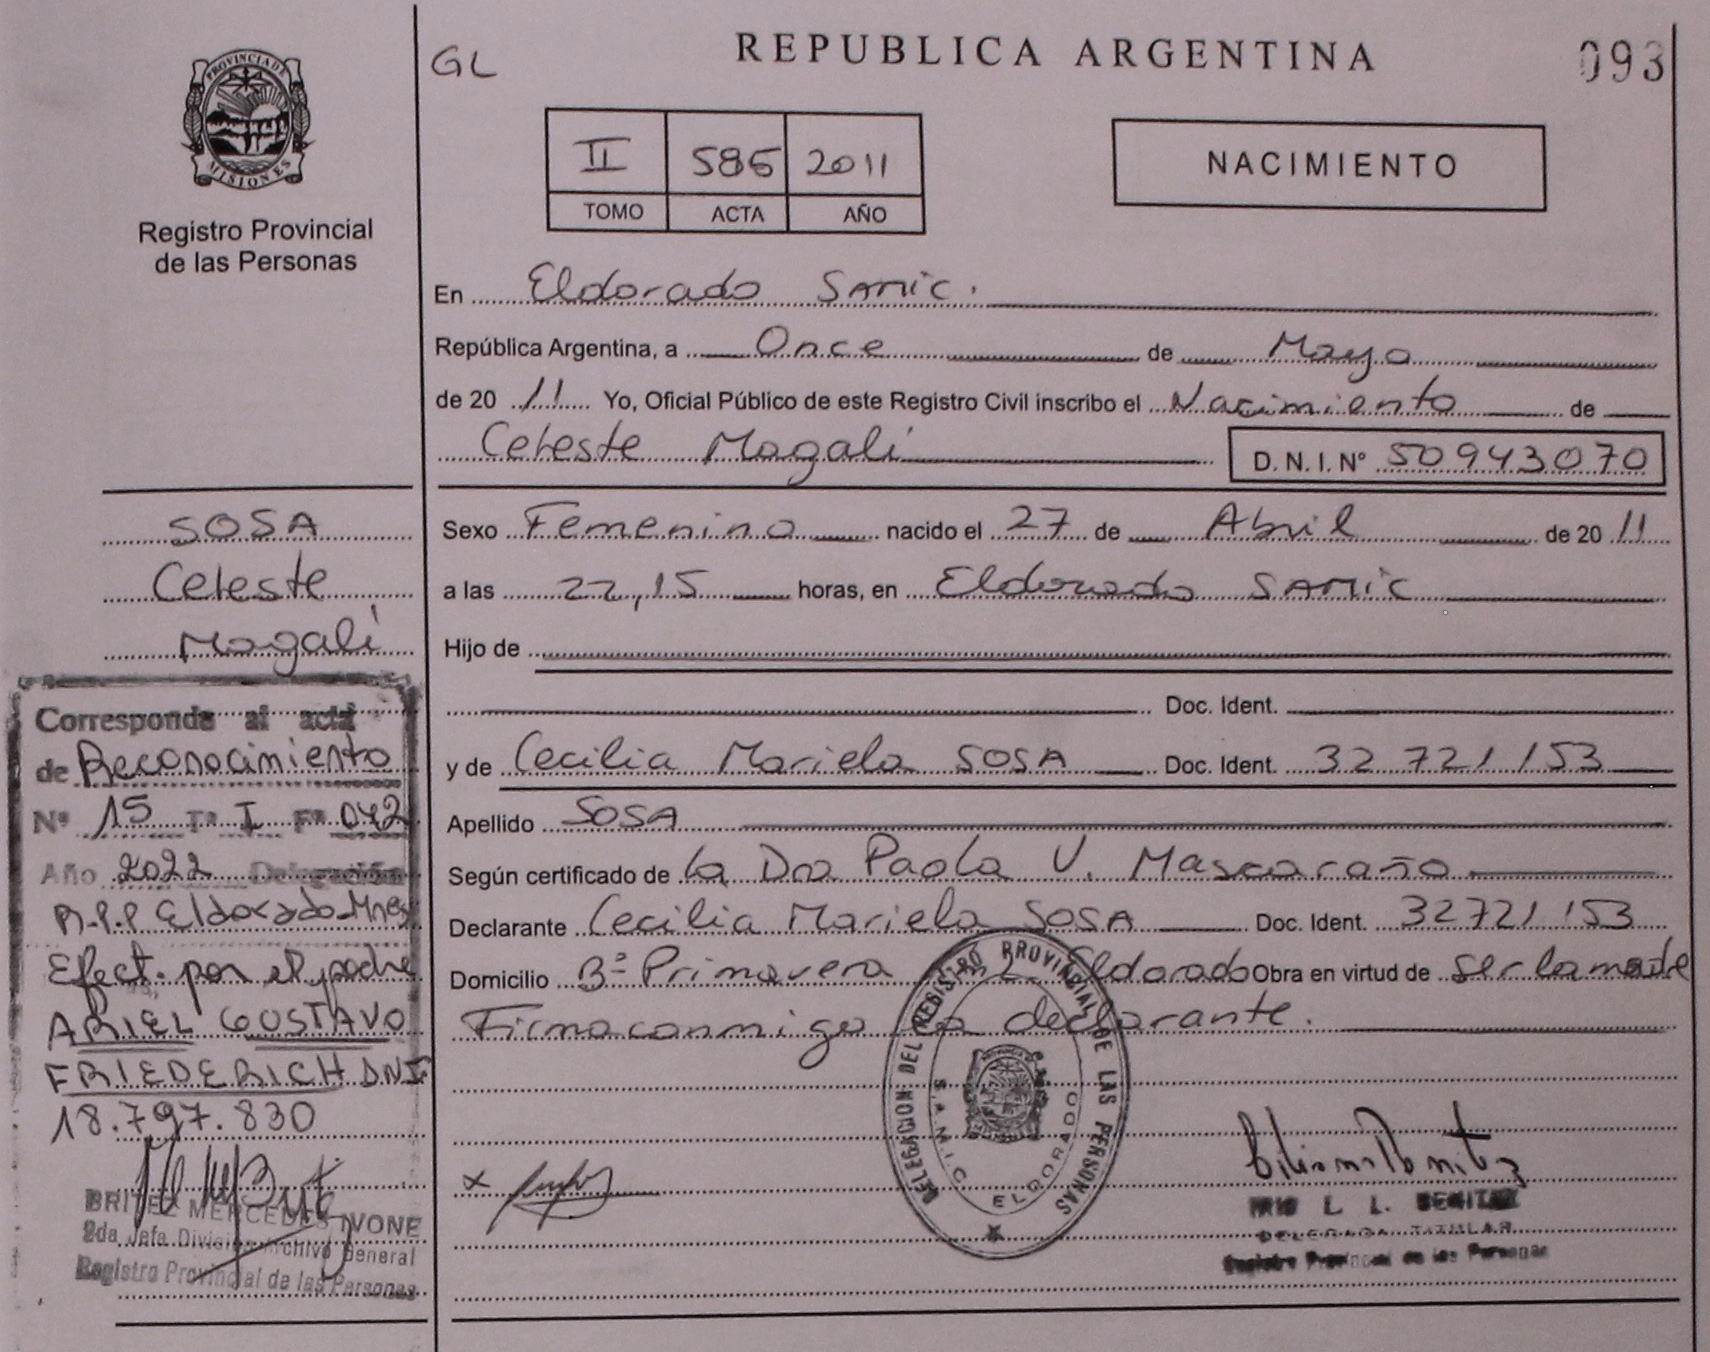 PROVINCIA DE
MISIONES
Registro Provincial
de las Personas
GL
REPUBLICA ARGENTINA
093
II 586 2011
TOMO ACTA AÑO
NACIMIENTO
En Eldorado SAMIC.
República Argentina, a Once de Mayo
de 20 11 Yo, Oficial Público de este Registro Civil inscribo el Nacimiento de
Celeste Magalí
D. N. I. Nº 50943070
Sexo Femenino nacido el 27 de Abril de 20 11
a las 22,15 horas, en Eldorado SAMIC
Hijo de
Doc. Ident.
y de Cecilia Mariela SOSA Doc. Ident. 32 721 153
Apellido SOSA
Según certificado de la Dra Paola V.
Declarante Cecilia Mariela SOSA Doc. Ident. 32721 153
Domicilio Bº Primavera Eldorado Obra en virtud de ser la madre
Firma conmigo la declarante.
SOSA
Celeste
Magalí
Corresponde al acta
de Reconocimiento
Nº 15 Tº I Fº 042
Año 2022 Delegación
R.P.P Eldorado-Mnes
Efect. por el padre
ARIEL GUSTAVO
FRIEDERICH DNI
18.797.830
BRITEZ MERCEDES IVONE
2da Jefa División Archivo General
Registro Provincial de las Personas
x
DELEGACION DEL REGISTRO PROVINCIAL DE LAS PERSONAS
S.A.M.I.C ELDORADO
L. L. BENITEZ
DELEGADA TITULAR
Registro Provincial de las Personas